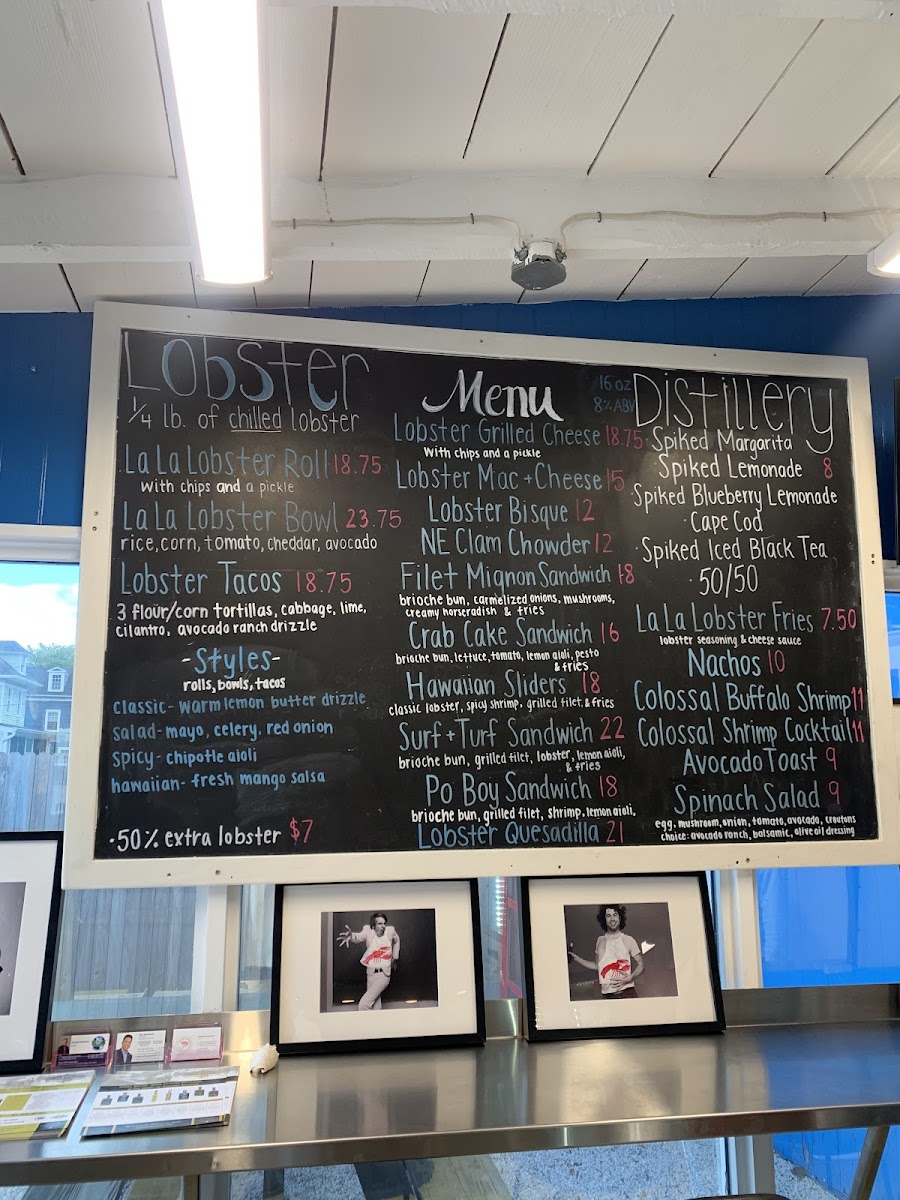 Lobster
1/4 lb. of chilled lobster
La La Lobster Roll 18.75
with chips and a pickle
La La Lobster Bowl 23.75
rice, corn, tomato, cheddar, avocado
Lobster Tacos 18.75
3 flour/corn tortillas, cabbage, lime,
cilantro, avocado ranch drizzle
-Styles-
rolls, bowls, tacos
classic- warm lemon butter drizzle
salad- mayo, celery, red onion
spicy- chipotle aioli
hawaiian- fresh mango salsa
·50% extra lobster $7
Menu
Lobster Grilled Cheese 18.75
With chips and a pickle
Lobster Mac + Cheese 15
Lobster Bisque 12
NE Clam Chowder 12
Filet Mignon Sandwich 18
brioche bun, carmelized onions, mushrooms,
creamy horseradish & fries
Crab Cake Sandwich 16
brioche bun, lettuce, tomato, lemon aioli, pesto
& fries
Hawaiian Sliders 18
classic lobster, spicy shrimp, grilled filet & fries
Surf + Turf Sandwich 22
brioche bun, grilled filet, lobster, lemon aioli,
& fries
Po Boy Sandwich 18
brioche bun, grilled filet, shrimp, lemon aioli,
Lobster Quesadilla 21
16 oz
8% ABV
Distillery
Spiked Margarita
Spiked Lemonade 8
·Spiked Blueberry Lemonade
·Cape Cod
·Spiked Iced Black Tea
50/50
La La Lobster Fries 7.50
lobster seasoning & cheese sauce
Nachos 10
Colossal Buffalo Shrimp 11
Colossal Shrimp Cocktail 11
Avocado Toast 9
Spinach Salad 9
egg, mushroom, onion, tomato, avocado, croutons
choice: avocado ranch, balsamic, olive oil dressing